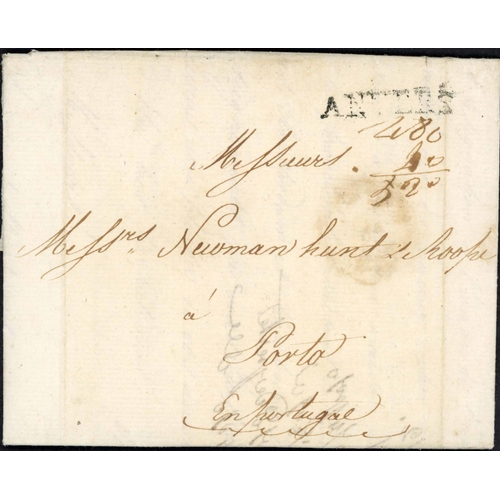 ANVERS
480
40
520
Messieurs.
Messrs Newman hunt & Roope
á
Porto
En portugal